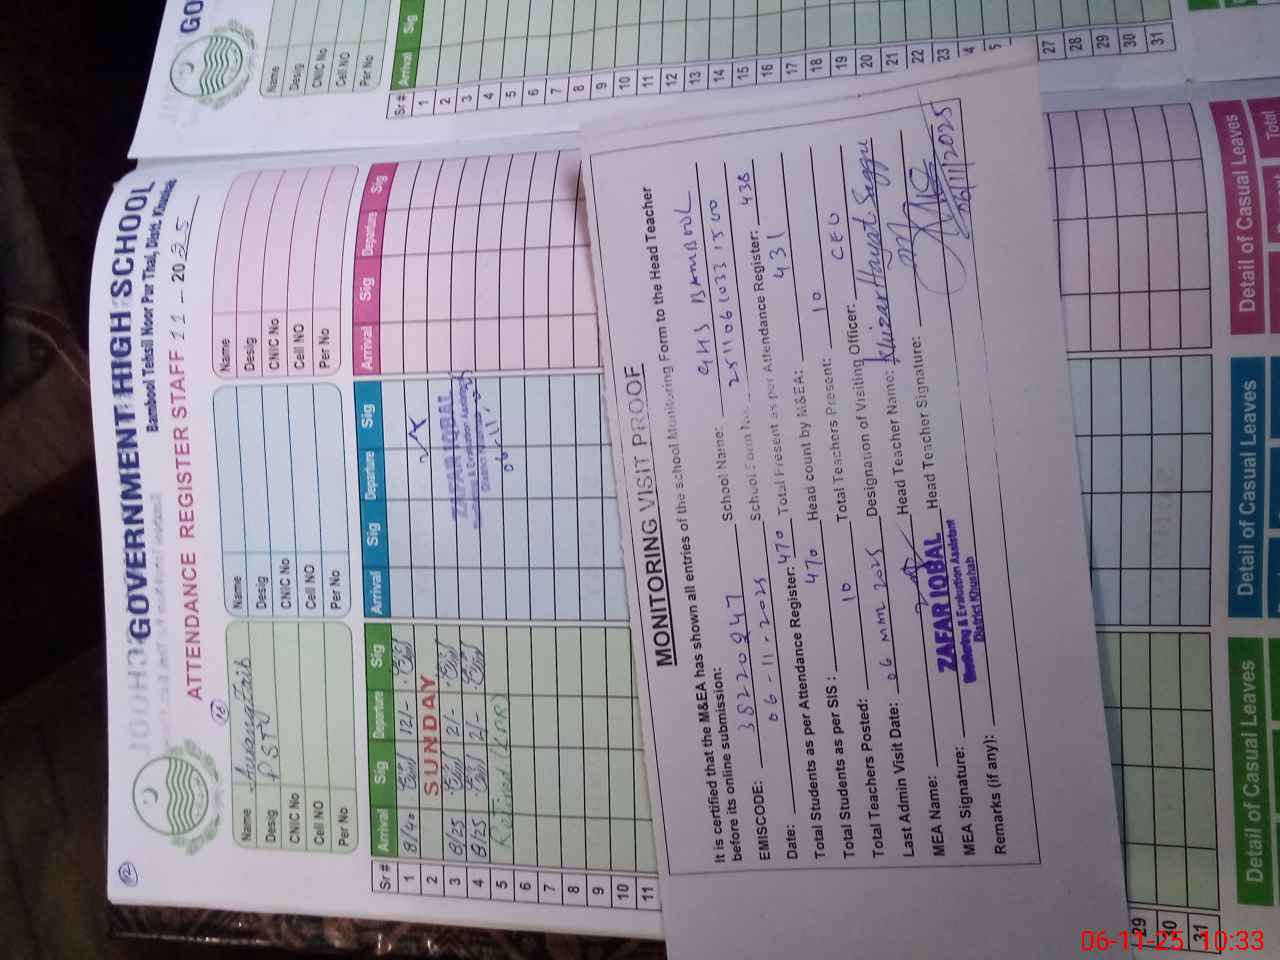 GOVERNMENT HIGH SCHOOL
Bambool Tehsil Noor Pur Thal, Distt. Khushab
ATTENDANCE REGISTER STAFF 11 - 2025
12
16
Name Aurangzaib
Desig PST
CNIC No
Cell NO
Per No
Name
Desig
CNIC No
Cell NO
Per No
Name
Desig
CNIC No
Cell NO
Per No
Sr # Arrival Sig Departure Sig Arrival Sig Departure Sig Arrival Sig Departure Sig
1 8/40 12/-
2 SUNDAY
3 8/25 2/-
4 8/25 2/-
5 Retired
6
7
8
9
10
11
29
30
31
ZAFAR IQBAL
Monitoring & Evaluation Assistant
District Khushab
06-11-
Detail of Casual Leaves
Detail of Casual Leaves
Detail of Casual Leaves
Total
MONITORING VISIT PROOF
It is certified that the M&EA has shown all entries of the school Monitoring Form to the Head Teacher
before its online submission:
EMISCODE: 38220247 School Name: GHS BAMBOOL
Date: 06-11-2025 School Form No. 25110610331500
Total Students as per Attendance Register: 470 Total Present as per Attendance Register: 438
Total Students as per SIS : 470 Head count by M&EA: 431
Total Teachers Posted: 10 Total Teachers Present: 10
Last Admin Visit Date: 06 mm 2025 Designation of Visiting Officer: CEO
MEA Name: Head Teacher Name: Khizar Hayat Saggu
MEA Signature: Head Teacher Signature:
ZAFAR IQBAL
Monitoring & Evaluation Assistant
District Khushab
06/11/2025
Remarks (if any):
GO
Name
Desig
CNIC No
Cell NO
Per No
Sr # Arrival Sig
1
2
3
4
5
6
7
8
9
10
11
12
13
14
15
16
17
18
19
20
21
22
23
4
5
27
28
29
30
31
06-11-25 10:33